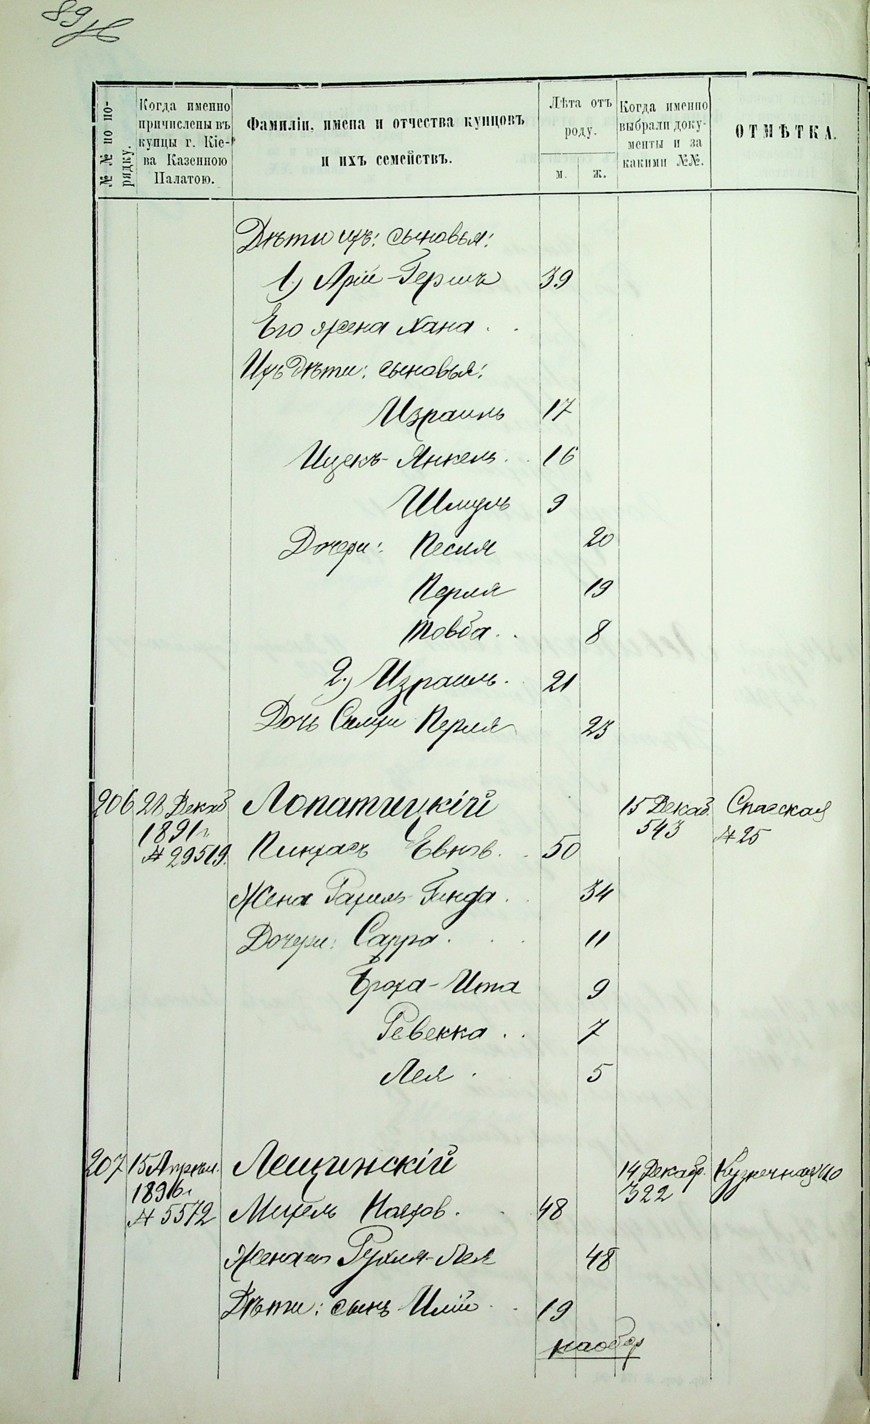 89
№№ по по-
рядку.
Когда именно
причислены въ
купцы г. Кіе-
ва Казенною
Палатою.
Фамиліи, имена и отчества купцовъ
и ихъ семействъ.
Лѣта отъ
роду.
м. ж.
Когда именно
выбрали доку-
менты и за
какими №№.
ОТМѢТКА.
Дѣти ихъ: сыновья:
1) Арій-Гершъ 39
Его жена Хана
Ихъ дѣти: сыновья:
Израиль 17
Ицекъ-Янкель 16
Шмуль 9
Дочери: Песия 20
Перля 19
Товба 8
2) Израиль 21
Дочь Перля 23
206 28 Декаб Лопатицкій 15 Декаб. Спасская
1891 г. 543 № 25
№ 29519. Пинхасъ Евнов. 50
Жена Рахиль-Гинда 34
Дочери: Сарра 11
Броха-Ита 9
Ревекка 7
Лея 5
207 15 Апрѣл. Лещинскій 14 Декабр. Кузнечная 110
1896 г. 322
№ 5572 Михель 48
Жена Рухля-Лея 48
Дѣти: сынъ Илій 19
наобор